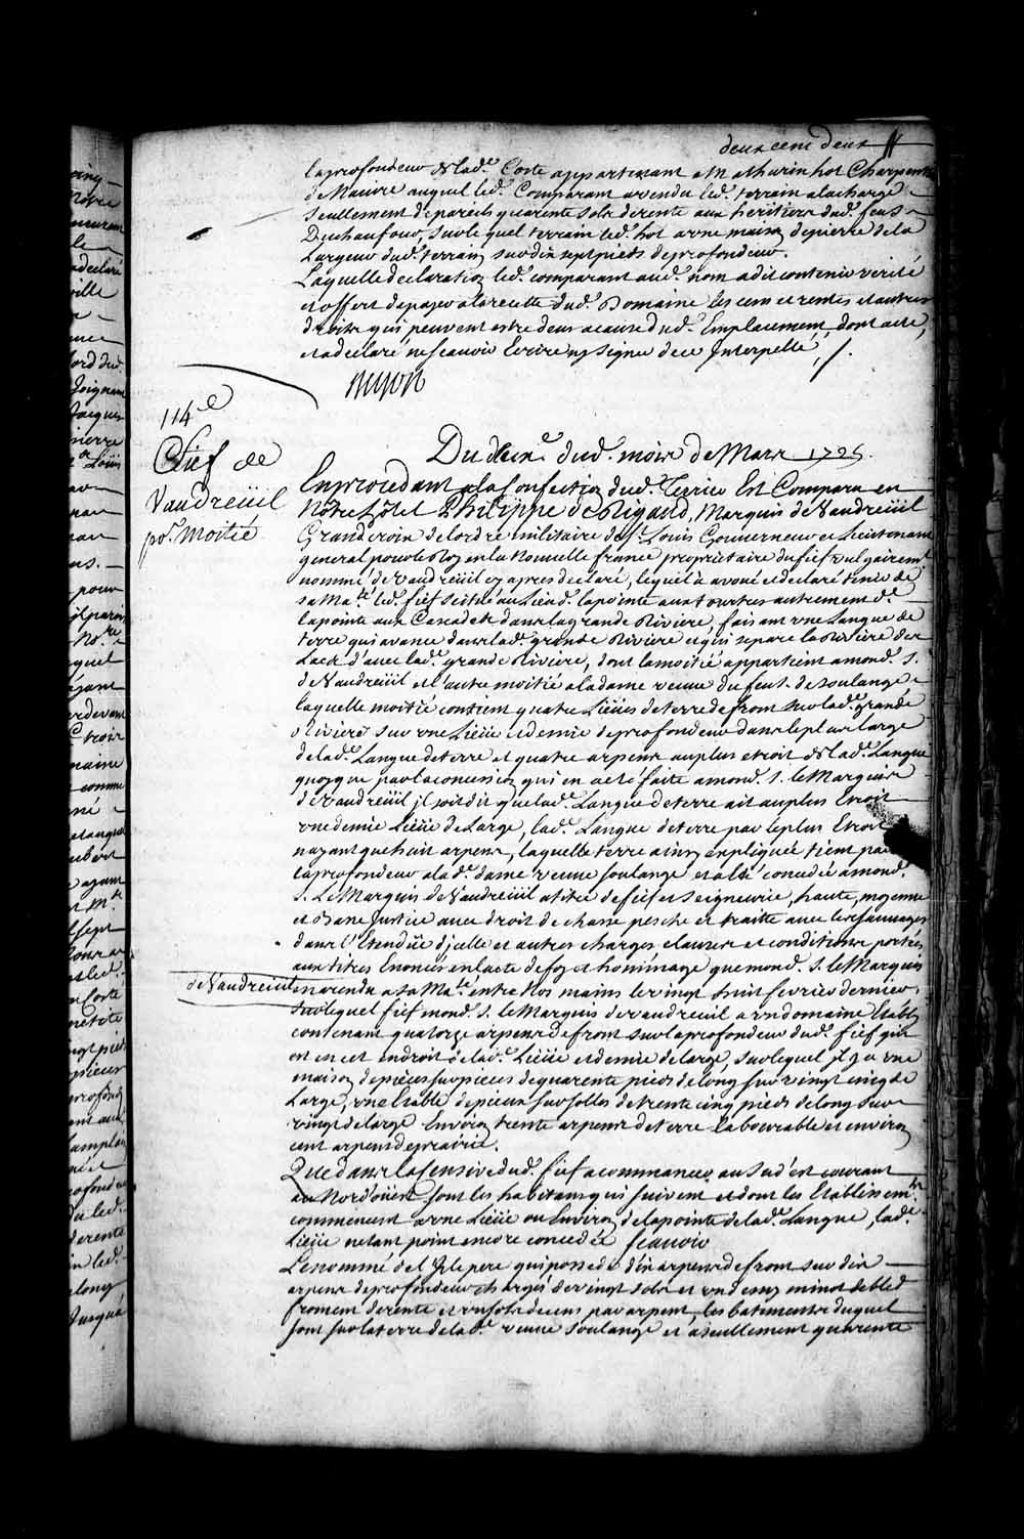 deux cent deux
la profondeur de lad.e Coste appartenant a Mathurin hot Charpentier
de Navire auquel led. Comparant a vendu led. terrain a la charge
seullement de pareils quarente sols de rente aux heritiers dud. feu s.
Duchaufour, sur lequel terrain led. hot a une maison de pierre de la
Largeur dud. terrain sur dix sept pieds de profondeur.
Laquelle declaration led. comparant aud. nom a dit contenir verité
et offert de payer a la recette dud. Domaine les cens et rentes et autres
droits qui peuvent estre deus a cause dud. Emplacement, dont acte,
et a declaré ne scavoir Ecrire ny signer de ce Interpellé ./.
114.e
Fief de
Vaudreüil
po.r Moitié
Du dud. mois de Mars 1725.
En procedant a la Confection dud. Terrier Est Comparu en
Nôtre hôtel Philippe de Rigaud, Marquis de Vaudreüil
Grand croix de lordre militaire de s.t Louis Gouverneur et Lieutenant
general pour le Roy en la Nouvelle france proprietaire du fief vulgairem.t
nommé de vaudreüil cy apres declaré, lequel a avoué et declaré tenir de
sa Ma.té led. fief scitué au Lieu d. la pointe aux tourtres autrement d.
la pointe aux Cascades dans la grande Riviere, faisant une Langue de
terre qui avance dans lad.e grande Riviere et qui separe la Riviere des
Lacs d'avec lad.e grande Riviere, dont la moitié appartient a mond. S.
de Vaudreüil et l'autre moitié a la dame veuve du feu s. de soulange
laquelle moitié contient quatre Lieües de terre de front sur lad.e grande
Riviere sur une Lieüe et demie de profondeur dans le plus large
de lad.e Langue de terre et quatre arpens au plus etroit de lad.e Langue
quoyque par la concession qui en a eté faite a mond. S. le Marquis
de vaudreüil il soit dit que lad.e Langue de terre ait au plus Etroit
une demie Lieüe de Large, lad.e Langue de terre par le plus Etroit
nayant que huit arpens, laquelle terre ainsy expliquée tient par
la profondeur a lad.e dame veuve soulange et a eté concedée a mond.
S. Le Marquis de Vaudreüil a titre de fief et seigneurie, haute, moyenne
et Basse Justice avec droit de chasse pesche et traitte avec les sauvages
dans l'Etendüe d'icelle et autres charges clauses et conditions portées
aux titres Enoncés en lacte de foy et hommage que mond. S. le Marquis
de Vaudreüil en a rendu a sa Ma.té entre Nos mains le vingt huit fevrier dernier.
sur lequel fief mond. S. le Marquis de vaudreuil a un domaine Etably
contenant quatorze arpens de front sur la profondeur dud. fief qui
en cet endroit de lad.e Lieüe et demie de large, sur lequel il y a une
maison de pieces sur pieces de quarente pieds de long sur vingt cinq de
Large, une Etable de pieux sur solles de trente cinq pieds de long sur
vingt de large Environ trente arpens de terre Labourable et environ
cent arpens de prairie.
Que dans la Censive dud. fief a commancer au Sud'est courant
au Nord'oüest sont les habitans qui suivent et dont les Etablissem.ts
commencent a une Lieüe ou Environ de la pointe de lad.e Langue, lad.e
Lieüe n'etant point encore concedée scavoir
Le nommé delisle pere qui possede dix arpens de front sur dix
arpens de profondeur chargés de vingt sols et un demy minot de bled
froment de rente et un sols de cens par arpent, les batiments duquel
sont sur la terre de la d.e veuve soulange et a seullement quarente